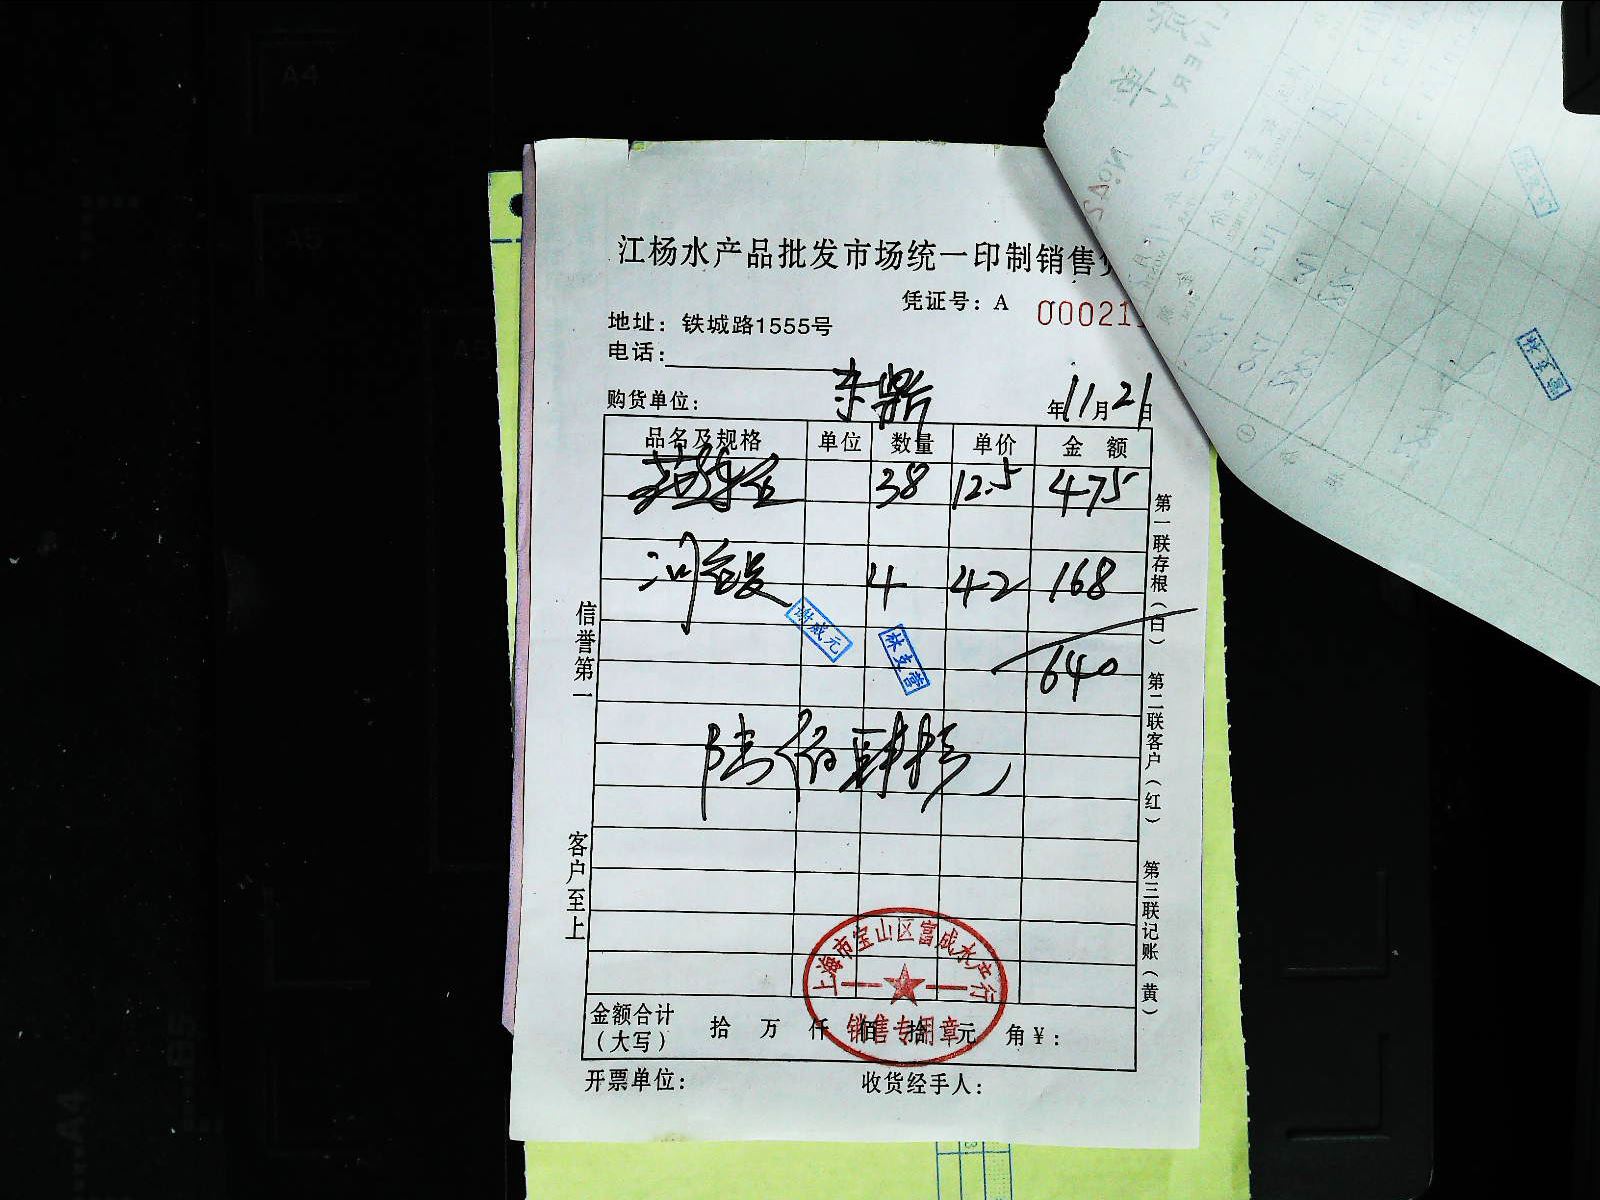 江杨水产品批发市场统一印制销售
凭证号：A 00021
地址：铁城路1555号
电话：
购货单位： 东鼎 年11月21日
品名及规格 单位 数量 单价 金 额
38 12.5 475
4 42 168
640
谢咸元
林支营
陆佰肆拾元
信誉第一
客户至上
第一联存根（白） 第二联客户（红） 第三联记账（黄）
上海市宝山区富成水产行
销售专用章
金额合计 拾 万 仟 佰 拾 元 角 ¥：
（大写）
开票单位： 收货经手人：
A4
A5